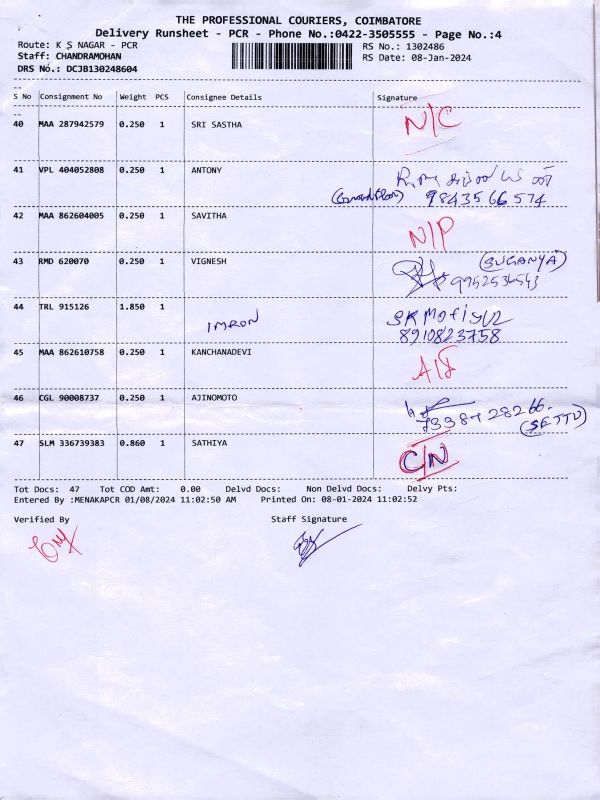 THE PROFESSIONAL COURIERS, COIMBATORE
Delivery Runsheet - PCR - Phone No.:0422-3505555 - Page No.:4
Route: K S NAGAR - PCR RS No.: 1302486
Staff: CHANDRAMOHAN RS Date: 08-Jan-2024
DRS No.: DCJB130248604
S No Consignment No Weight PCS Consignee Details Signature
40 MAA 287942579 0.250 1 SRI SASTHA N/C
41 VPL 404052808 0.250 1 ANTONY
9843566574
42 MAA 862604005 0.250 1 SAVITHA N/P
43 RMD 620070 0.250 1 VIGNESH (SUGANYA)
44 TRL 915126 1.850 1
IMRON
8910823758
45 MAA 862610758 0.250 1 KANCHANADEVI
46 CGL 90008737 0.250 1 AJINOMOTO
(SETTU)
47 SLM 336739383 0.860 1 SATHIYA C/N
Tot Docs: 47 Tot COD Amt: 0.00 Delvd Docs: Non Delvd Docs: Delvy Pts:
Entered By :MENAKAPCR 01/08/2024 11:02:50 AM Printed On: 08-01-2024 11:02:52
Verified By Staff Signature